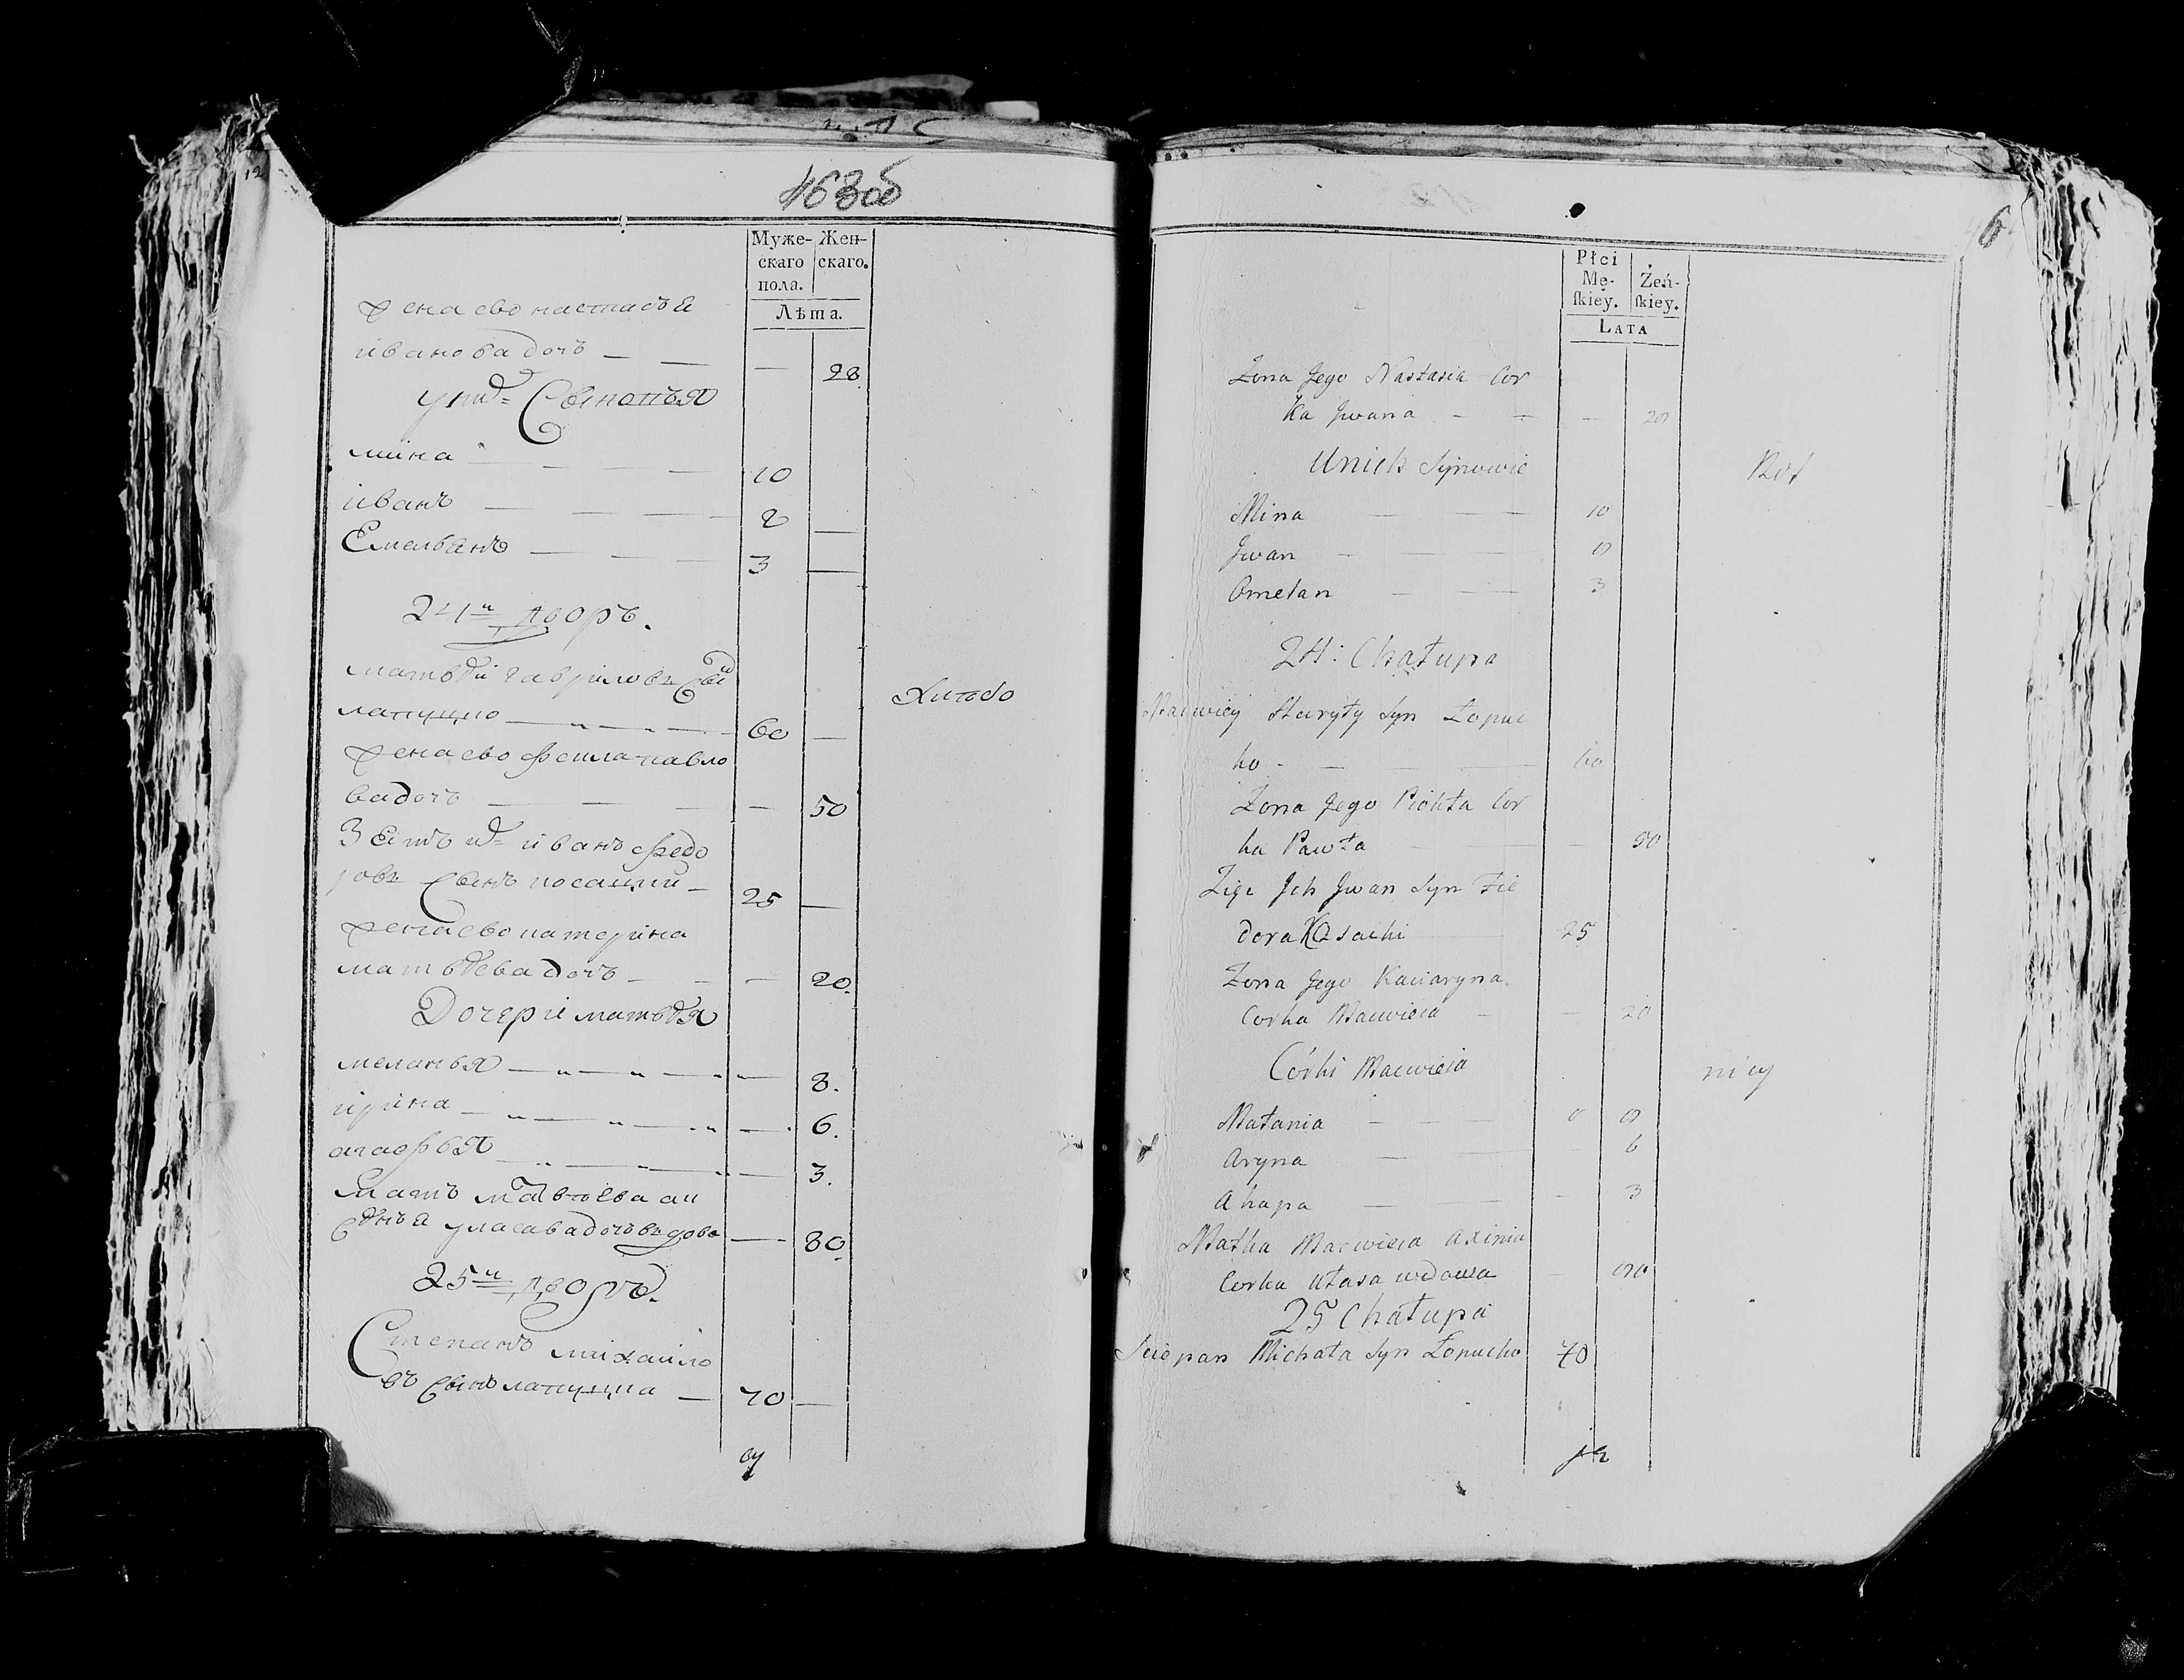 463об
Муже-
скаго
пола.
Жен-
скаго.
Лѣта.
жена ево настасъя
ивановадочь — — — 28.
у них Сыновья
мина — — — — 10
иванъ — — — — 8 —
Емельянъ — — — 3 —
24й дворъ.
матвѣй гавриловъ Сын
лапуцко — — — — 60 —
жена ево фекла павло
вадочь — — — — 50
Зеть их иванъ федо
ровъ Сынъ косацкий — 25 —
жена ево катерина
матвѣевадочь — — — 20.
Дочери матвѣя
меланья — — — — 8.
ирина — — — — 6.
агафья — — — — 3.
мать матвѣева ак
сѣнья уласавадочь вдова — 80.
25й дворъ.
Степанъ михайло
въ Сынъ лапуцка — 70 —
6
Płci
Mę-
skiey.
Żeń-
skiey.
LATA
Żona Jego Nastasia Cor
Ka Jwana — — — 28
Unich Synowie
Mina — — — 10
Jwan — — — 8
Omelan — — 3
24: Chałupa
Maciwiey Hawryły Syn Łopuc
ko — — — 60
Żona Jego Fiokła Cor
ka Pawła — — 50
Zięć Ich Jwan Syn Fie
dora Kosacki — 25
Żona Jego Kaciaryna
Corka Maciwieia — — 20
Córki Maciwieia
Małania — — 8
Aryna — — 6
Ahapa — — 3
Matka Maciwieia Axinia
Corka Ułasa wdowa — 80
25 Chałupa
Sciepan Michała Syn Łopucko 70